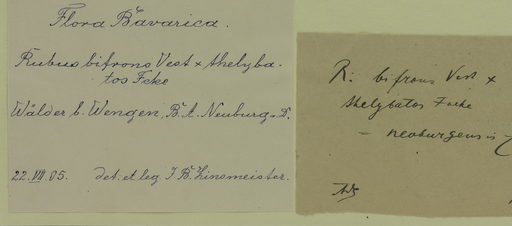 Flora Bavarica.
Rubus bifrons Vest x thelyba-
tos Fcke
Wälder b. Wengen, B.A. Neuburg a. D.
22. VII. 05. det. et leg. J. B. Zinsmeister.
R. bifrons Vest x
thelybatos Focke
= neoburgensis